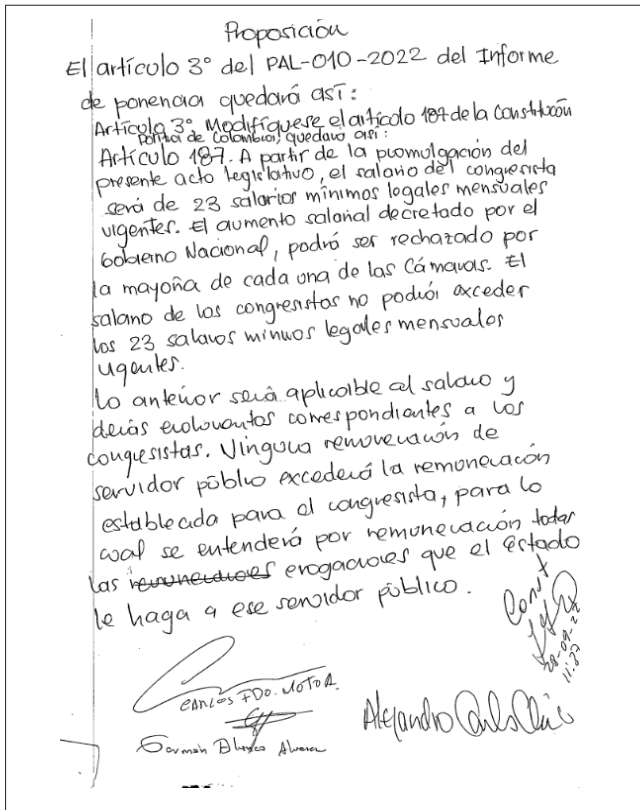 Proposición
El artículo 3° del PAL-010-2022 del Informe
de ponencia quedará así:
Artículo 3° Modifíquese el artículo 187 de la Constitución
Política de Colombia, quedará así:
Artículo 187. A partir de la promulgación del
presente acto legislativo, el salario del congresista
será de 23 salarios mínimos legales mensuales
vigentes. El aumento salarial decretado por el
Gobierno Nacional, podrá ser rechazado por
la mayoría de cada una de las Cámaras. El
salario de los congresistas no podrá exceder
los 23 salarios mínimos legales mensuales
vigentes.
Lo anterior será aplicable al salario y
demás emolumentos correspondientes a los
congresistas. Ninguna remuneración de
servidor público excederá la remuneración
establecida para el congresista, para lo
cual se entenderá por remuneración todas
las remuneraciones erogaciones que el Estado
le haga a ese servidor público.
28-09-22
11:27
CARLOS FDO. MOTOA.
Alejandro Carlos
Germán Blanco Alvarez